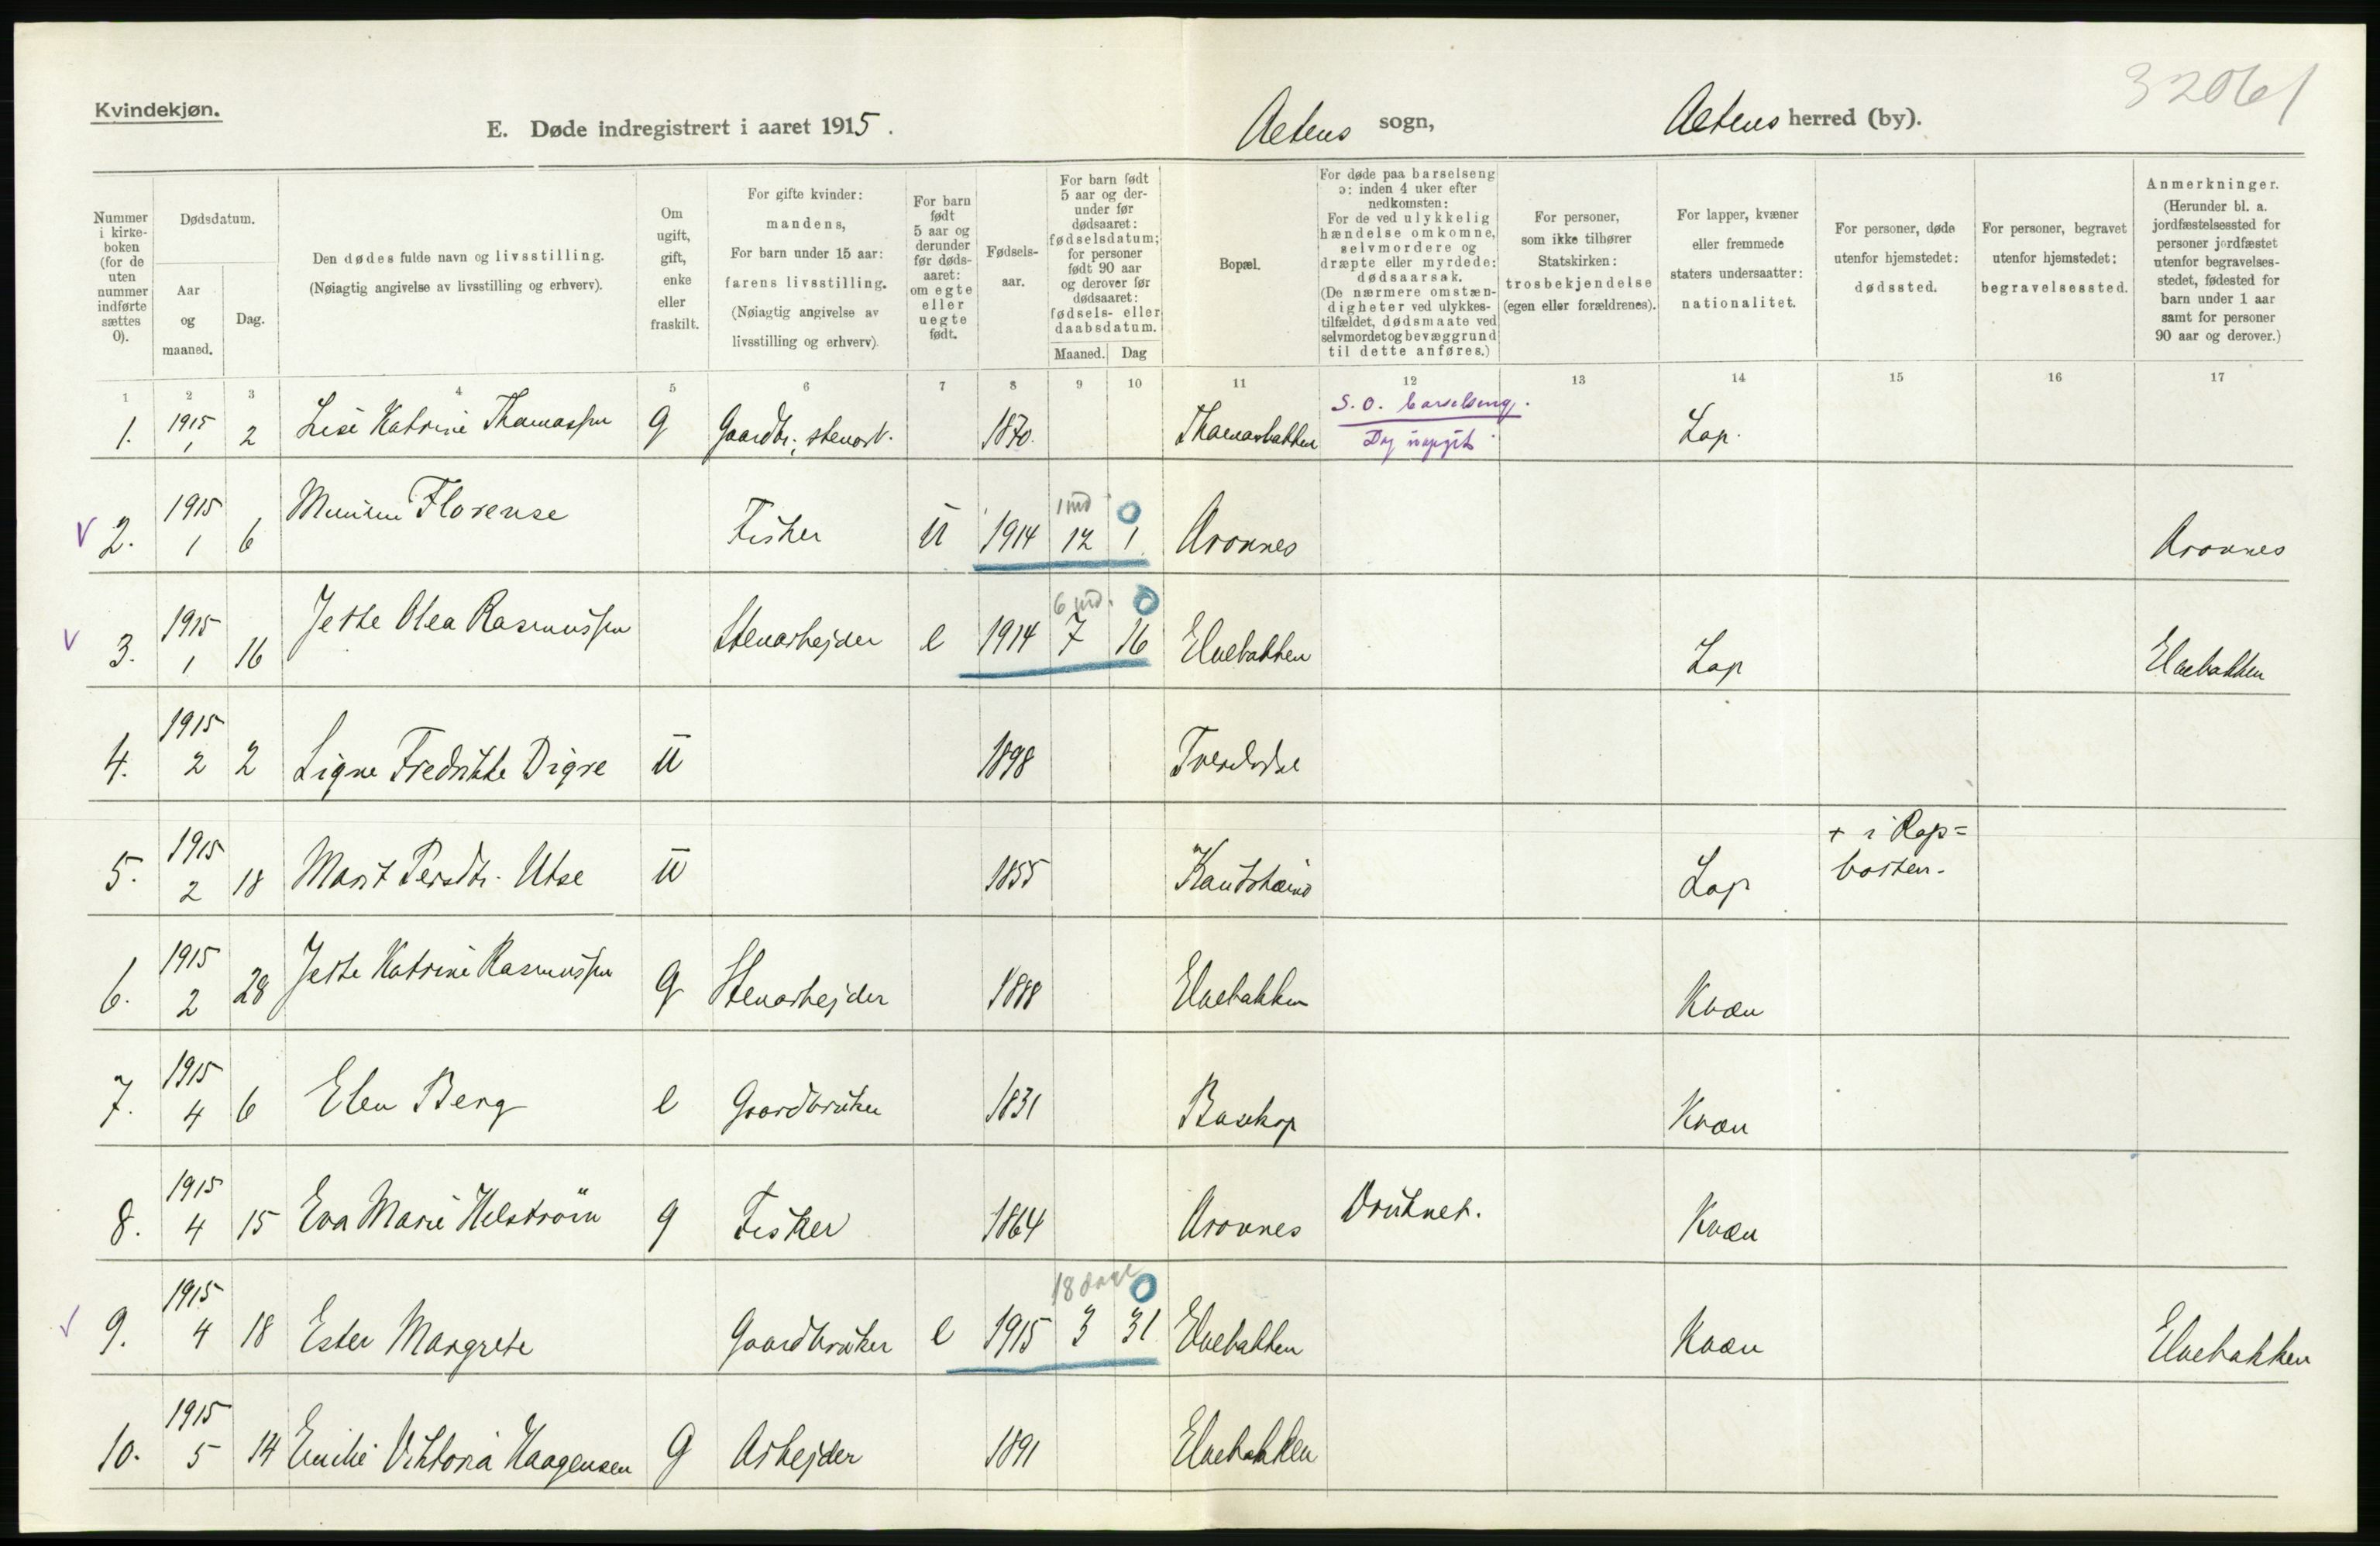 Kvindekjøn.
E. Døde indregistrert i aaret 1915.
Altens sogn,
Altens herred (by).
32061
Nummer i kirke-boken (for de uten nummer indførte sættes 0).
Dødsdatum.
Aar og maaned.
Dag.
Den dødes fulde navn og livsstilling.
(Nøiagtig angivelse av livsstilling og erhverv).
Om ugift, gift, enke eller fraskilt.
For gifte kvinder: mandens,
For barn under 15 aar: farens livsstilling.
(Nøiagtig angivelse av livsstilling og erhverv).
For barn født 5 aar og derunder før døds-aaret: om egte eller uegte født.
Fødsels-aar.
For barn født 5 aar og der-under før dødsaaret: fødselsdatum; for personer født 90 aar og derover før dødsaaret: fødsels- eller daabsdatum.
Maaned.
Dag
Bopæl.
For døde paa barselseng ɔ: inden 4 uker efter nedkomsten:
For de ved ulykkelig hændelse omkomne, selvmordere og dræpte eller myrdede: dødsaarsak.
(De nærmere omstæn-digheter ved ulykkes-tilfældet, dødsmaate ved selvmordet og bevæggrund til dette anføres.)
For personer, som ikke tilhører Statskirken: trosbekjendelse (egen eller forældrenes).
For lapper, kvæner eller fremmede staters undersaatter: nationalitet.
For personer, døde utenfor hjemstedet: dødssted.
For personer, begravet utenfor hjemstedet: begravelsessted.
Anmerkninger.
(Herunder bl. a. jordfæstelsessted for personer jordfæstet utenfor begravelses-stedet, fødested for barn under 1 aar samt for personer 90 aar og derover.)
1 2 3 4 5 6 7 8 9 10 11 12 13 14 15 16 17
1. 1915 1 2 Lise Katrine Thomassen g Gaardbr., stenarb. 1870. Thomasbakken S. O. barselseng. Dag uopgit. Lap.
V 2. 1915 1 6 Florense Fisker u 1914 12 1 1 md 0 Aronnes Aronnes
V 3. 1915 1 16 Jette Olea Rasmussen Stenarbejder e 1914 7 16 6 md. 0 Elvebakken Lap Elvebakken
4. 1915 2 2 Signe Fredrikke Digre u 1898 Tverelvdal
5. 1915 2 18 Marit Persdtr. Utse u 1855 Kautokeino Lap + i Rap=
botten.
6. 1915 2 28 Jette Katrine Rasmussen g Stenarbejder 1888 Elvebakken Kvæn
7. 1915 4 6 Elen Berg e Gaardbruker 1831 Bosekop Kvæn
8. 1915 4 15 Eva Marie Helström g Fisker 1864 Aronnes Druknet. Kvæn
V 9. 1915 4 18 Ester Margrete Gaardbruker e 1915 3 31 18 dage 0 Elvebakken Kvæn Elvebakken
10. 1915 5 14 Emilie Viktoria Haagensen g Arbejder 1891 Elvebakken